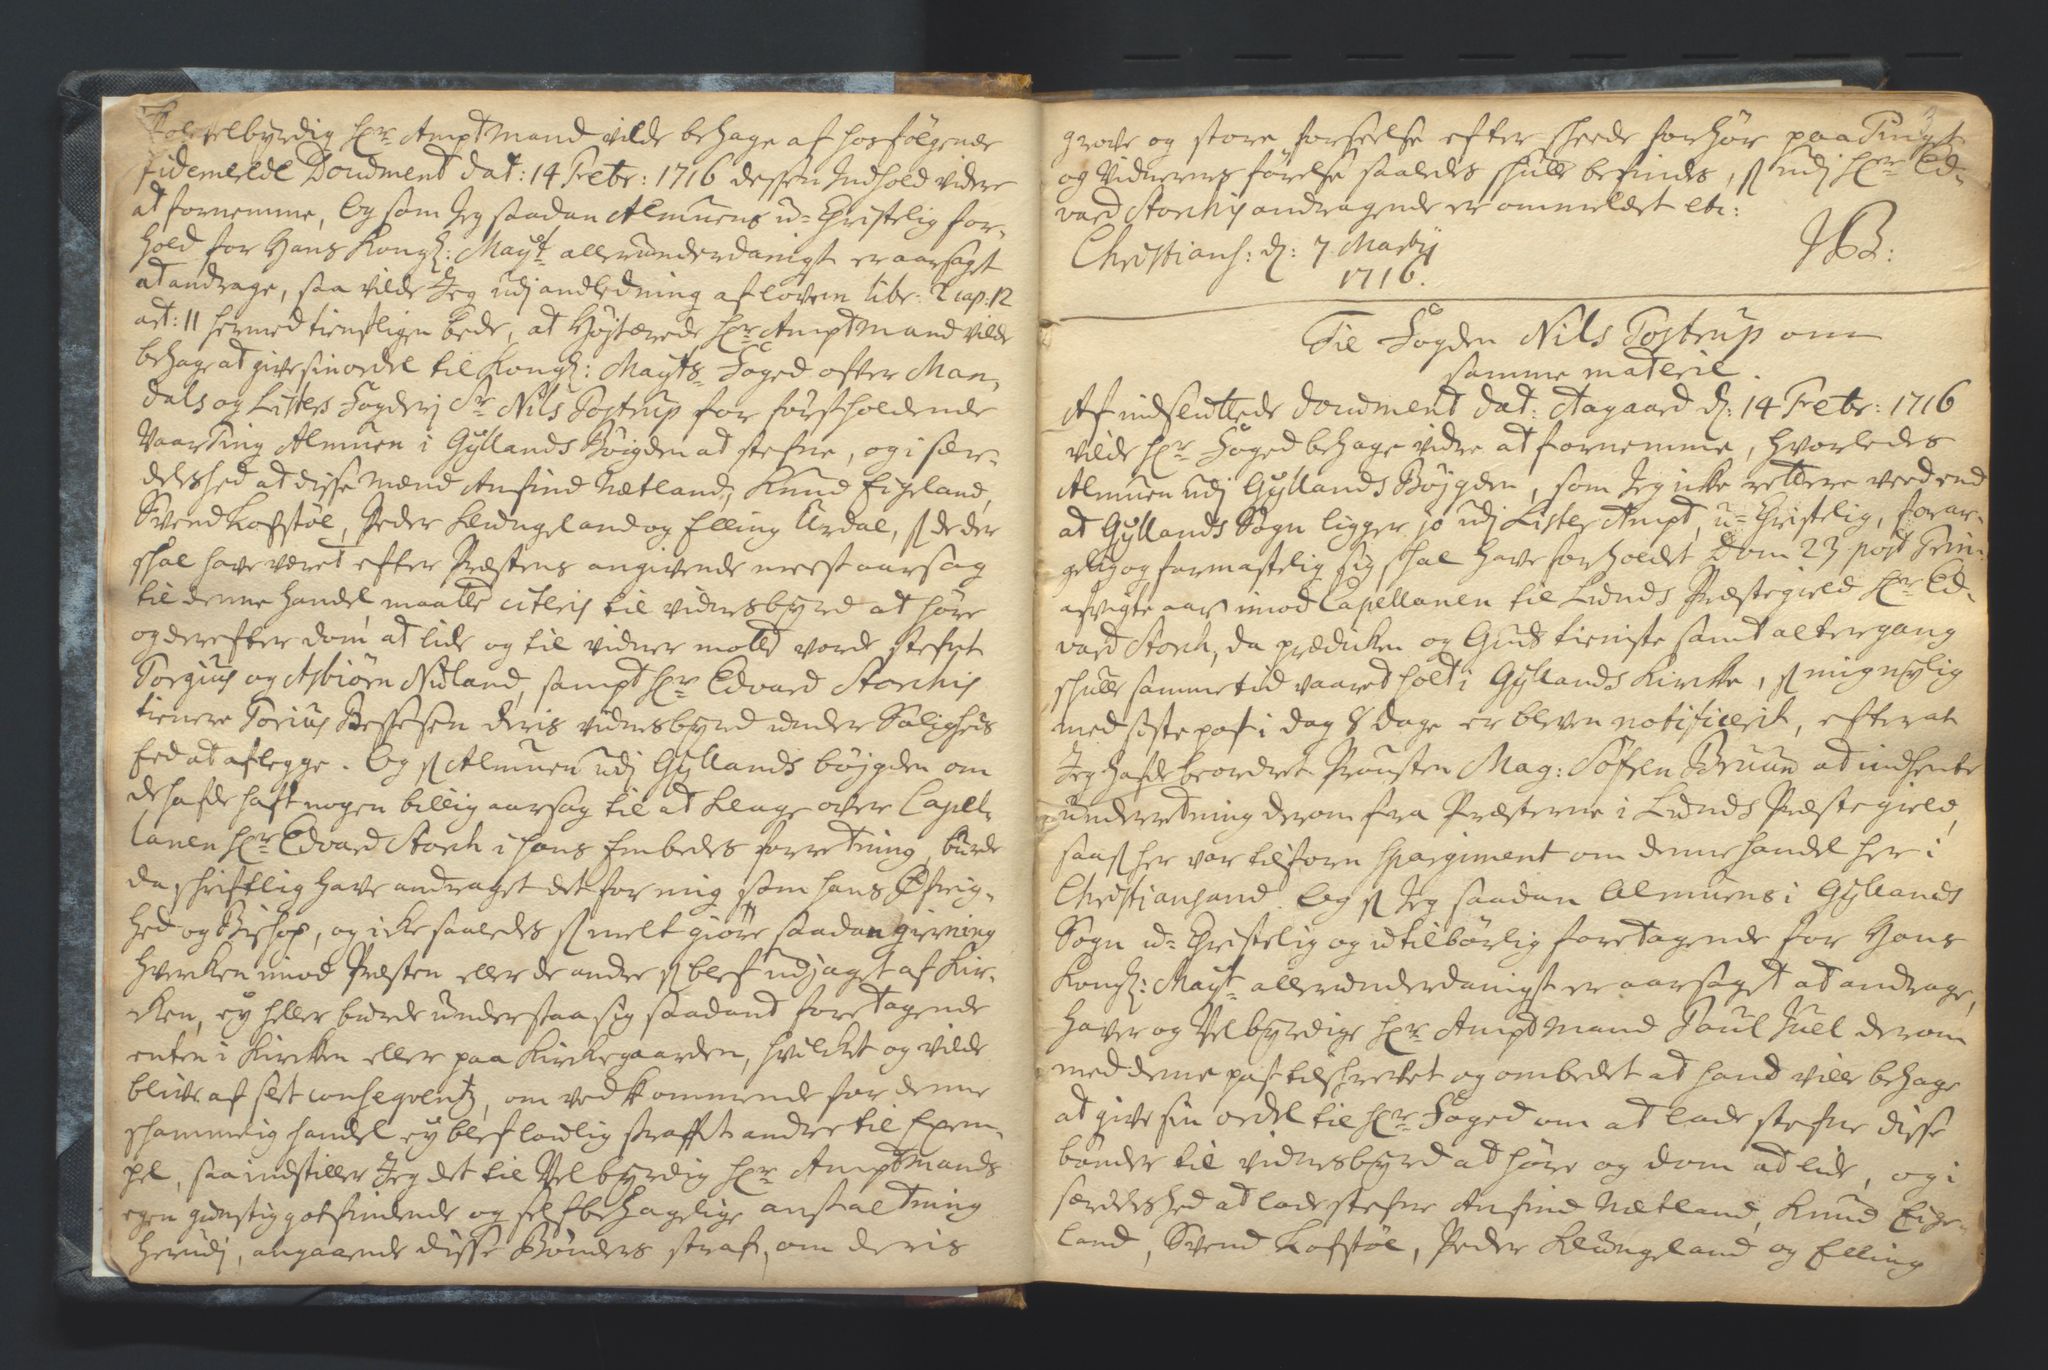 Velbyrdig hr Amptmand vilde behage af hosfölgende
fidemelde Document dat: 14 Febr: 1716 dessen Indhold videre
at fornemme, Og som Jeg saadan Almuens u-Christelig for-
hold for Hans Kongl: Mayt allerunderdanigst er aarsaget
at andrage, saa vilde Jeg udj andledning af loven libr: 2 cap: 12
art: 11 hermed tienstligen bede, at Höjtærede hr Amptmand vilde
behage at give sin ordre til Kongl: Mayts Foged ofver Man-
dals og Listers Fogderj Sr Nils Tostrup for först holdende
Vaarting Almuen i Gyllands Bøigden at stefne, og i sær-
deleshed at disse mænd Anfind Netland, Knud Eigeland,
Svend Lofstöl, Peder Klungeland og Elling Urdal, s de der
skal have været efter Præstens angivende meest aarsag
til denne handel maatte citeris til vidnesbyrd at höre
og derefter dom at lide og til vidner motte vorde stefnt
Torgius og Asbiörn Nuland, sampt hr Edvard Storchis
tienere Torius Bessesen deris vidnesbyrd under Saligheds
Eed at aflegge. Og s Almuen udj Gyllands böjgden om
de hafde haft nogen billig aarsag til at klage over Capel-
lanen hr Edvard Storch i hans Embedes forretning, burde
da skriftlig have andraget det for mig som hans Öfrig-
hed og Bishop, og icke saaledes s melt giöre saadan gierning
hverken imod Præsten eller de andre s blef udjaget af Kir-
cken, ey heller burde understaa sig saadant foretagende
enten i Kircken eller paa Kirckegaarden, hvilcket og vilde
blive af slet conseqventz, om vedkommende for denne
skammelig handel ey blef lovlig straffet andre til Exem-
pel, saa indstiller Jeg det til Velbyrdig hr Amptmands
egen gunstig gotfindende og self behagelige anstaltning
herudj, angaaende disse Bönders straf, om deris
grove og store forseelse efter skeede forhör paa Tinget
og vidnernes förelse saaledes skulle befindes, s udj hr Ed-
vard Storchis andragende er ommeldet etc:
Christians: d: 7 Martij
1716.
JB:
Til Fogden Nils Tostrup om
samme materie.
Af indsluttede Document dat: Aagaard d: 14 Febr: 1716
vilde hr Foged behage vidre at fornemme, hvorledes
Almuen udj Gyllands Böjgden, som Jeg icke rettere veed end
at Gyllands Sogn ligger jo udj Lister Ampt, u-Christelig, forar-
gelig og formastelig sig skal have forholdet Dom 23 post Trin:
afvigte aar imod Capellanen til Lunds Præstegield hr Ed-
vard Storch, da prædicken og Guds tieniste samt altergang
skulle samme tid vaaret holt i Gyllands Kircke, s mig nylig
med siste post i dag 8 dage er bleven notificerit, efter at
Jeg hafde beordret Prousten Mag: Söfren Bruun at indhente
underretning derom fra Præsterne i Lunds Præstegield,
saas her var tilforn spargiment om denne handel her i
Christiansand. Og s Jeg saadan Almuens i Gyllands
Sogn u-Christelig og utilbörlig foretagende for Hans
Kongl: Mayt allerunderdanigst er aarsaget at andrage,
haver og Velbyrdige hr Amptmand Poul Juel derom
med denne post tilskrevet og ombedet at hand ville behage
at give sin ordre til hr Foged om at lade stefne disse
bönder til vidnesbyrd at höre og dom at lide, og i
særdeleshed at lade stefne Anfind Netland, Knud Eige-
land, Svend Lofstöl, Peder Klungeland og Elling